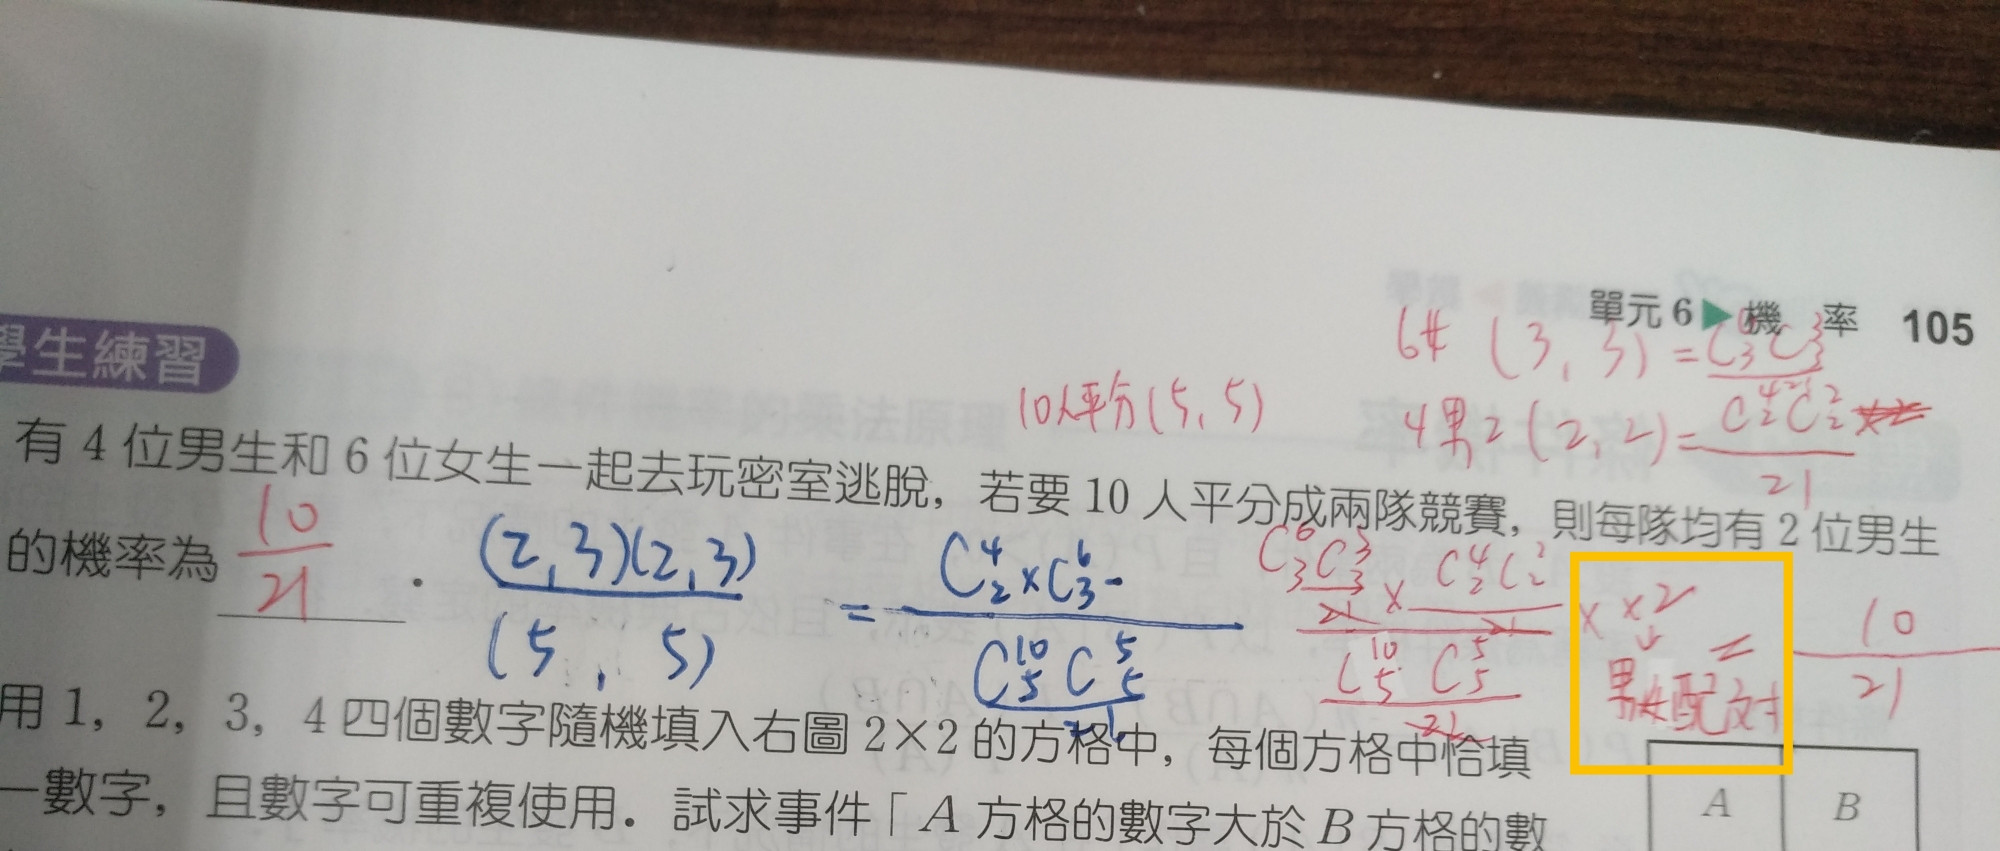 單元 6 ▶ 機 率 105
6女 (3, 3) = C⁶₃C³₃ / 2!
學生練習
10人平分(5, 5)
4男2 (2, 2) = C⁴₂C²₂ / 2!
有 4 位男生和 6 位女生一起去玩密室逃脫，若要 10 人平分成兩隊競賽，則每隊均有 2 位男生
的機率為 10/21 .
(2, 3)(2, 3) / (5, 5) = C⁴₂ × C⁶₃ / (C¹⁰₅ C⁵₅ / 2!)
(C⁶₃C³₃ / 2! × C⁴₂C²₂ / 2!) / (C¹⁰₅ C⁵₅ / 2!) × ×2 = 10/21
男女配对
用 1，2，3，4 四個數字隨機填入右圖 2×2 的方格中，每個方格中恰填
一數字，且數字可重複使用．試求事件「A 方格的數字大於 B 方格的數
A B